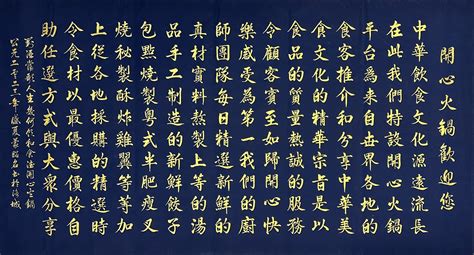 開心火鍋歡迎您
中華飲食文化源遠流長
在此我們特設開心火鍋
平台為來自世界各地的
食客推介和分享中華美
食文化的精華宗旨是以
食品高質量熱誠的服務
令顧客賓至如歸開心快
樂感受為最前我們的廚
師團隊每日精選新鮮的
真材實料熬製上等的湯
品手工制造的新鮮餃子
包點燒製粵式半肥瘦叉
燒秘製酥炸雞翼等等加
上從各地採購的精選時
令食材以最優惠價格自
助任選方式與大眾分享